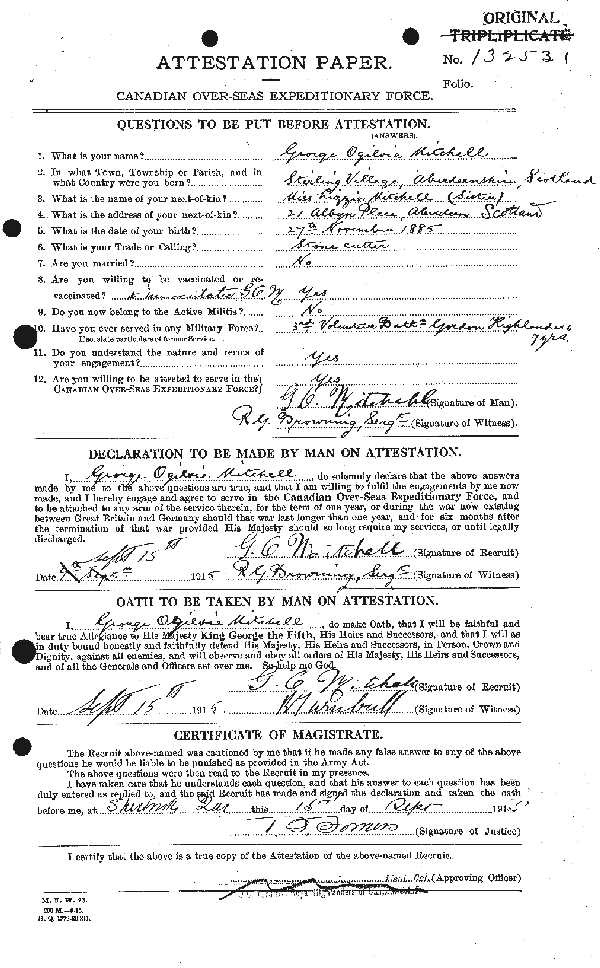 ORIGINAL
TRIPLIPLICATE
No. 132531
Folio.
ATTESTATION PAPER.
CANADIAN OVER-SEAS EXPEDITIONARY FORCE.
QUESTIONS TO BE PUT BEFORE ATTESTATION.
(ANSWERS).
1. What is your name? George Ogilvie Mitchell
2. In what Town, Township or Parish, and in
what Country were you born? Stirling Village, Aberdeenshire, Scotland
3. What is the name of your next-of-kin? Miss Lizzie Mitchell (Sister)
4. What is the address of your next-of-kin? 21 Albyn Place, Aberdeen Scotland
5. What is the date of your birth? 27th November 1885
6. What is your Trade or Calling? Stone cutter
7. Are you married? No
8. Are you willing to be vaccinated or re-
vaccinated? Yes
9. Do you now belong to the Active Militia? No
10. Have you ever served in any Military Force? 3rd Volunteer Batt. Gordon Highlanders
If so, state particulars of former Service. 7 yrs.
11. Do you understand the nature and terms of
your engagement? Yes
12. Are you willing to be attested to serve in the
CANADIAN OVER-SEAS EXPEDITIONARY FORCE? Yes
G O Mitchell (Signature of Man).
R G Browning, Sergt (Signature of Witness).
DECLARATION TO BE MADE BY MAN ON ATTESTATION.
I, George Ogilvie Mitchell, do solemnly declare that the above answers
made by me to the above questions are true, and that I am willing to fulfil the engagements by me now
made, and I hereby engage and agree to serve in the Canadian Over-Seas Expeditionary Force, and
to be attached to any arm of the service therein, for the term of one year, or during the war now existing
between Great Britain and Germany should that war last longer than one year, and for six months after
the termination of that war provided His Majesty should so long require my services, or until legally
discharged.
Sept 15th G O Mitchell (Signature of Recruit)
Date 1915 R G Browning, Sergt (Signature of Witness)
OATH TO BE TAKEN BY MAN ON ATTESTATION.
I, George Ogilvie Mitchell, do make Oath, that I will be faithful and
bear true Allegiance to His Majesty King George the Fifth, His Heirs and Successors, and that I will as
in duty bound honestly and faithfully defend His Majesty, His Heirs and Successors, in Person, Crown and
Dignity, against all enemies, and will observe and obey all orders of His Majesty, His Heirs and Successors,
and of all the Generals and Officers set over me. So help me God.
G O Mitchell (Signature of Recruit)
Date Sept 15th 1915 (Signature of Witness)
CERTIFICATE OF MAGISTRATE.
The Recruit above-named was cautioned by me that if he made any false answer to any of the above
questions he would be liable to be punished as provided in the Army Act.
The above questions were then read to the Recruit in my presence.
I have taken care that he understands each question, and that his answer to each question has been
duly entered as replied to, and the said Recruit has made and signed the declaration and taken the oath
before me, at Sherbrooke Que this 15th day of Sept 1915
(Signature of Justice)
I certify that the above is a true copy of the Attestation of the above-named Recruit.
Lieut. Col. (Approving Officer)
M. F. W. 23.